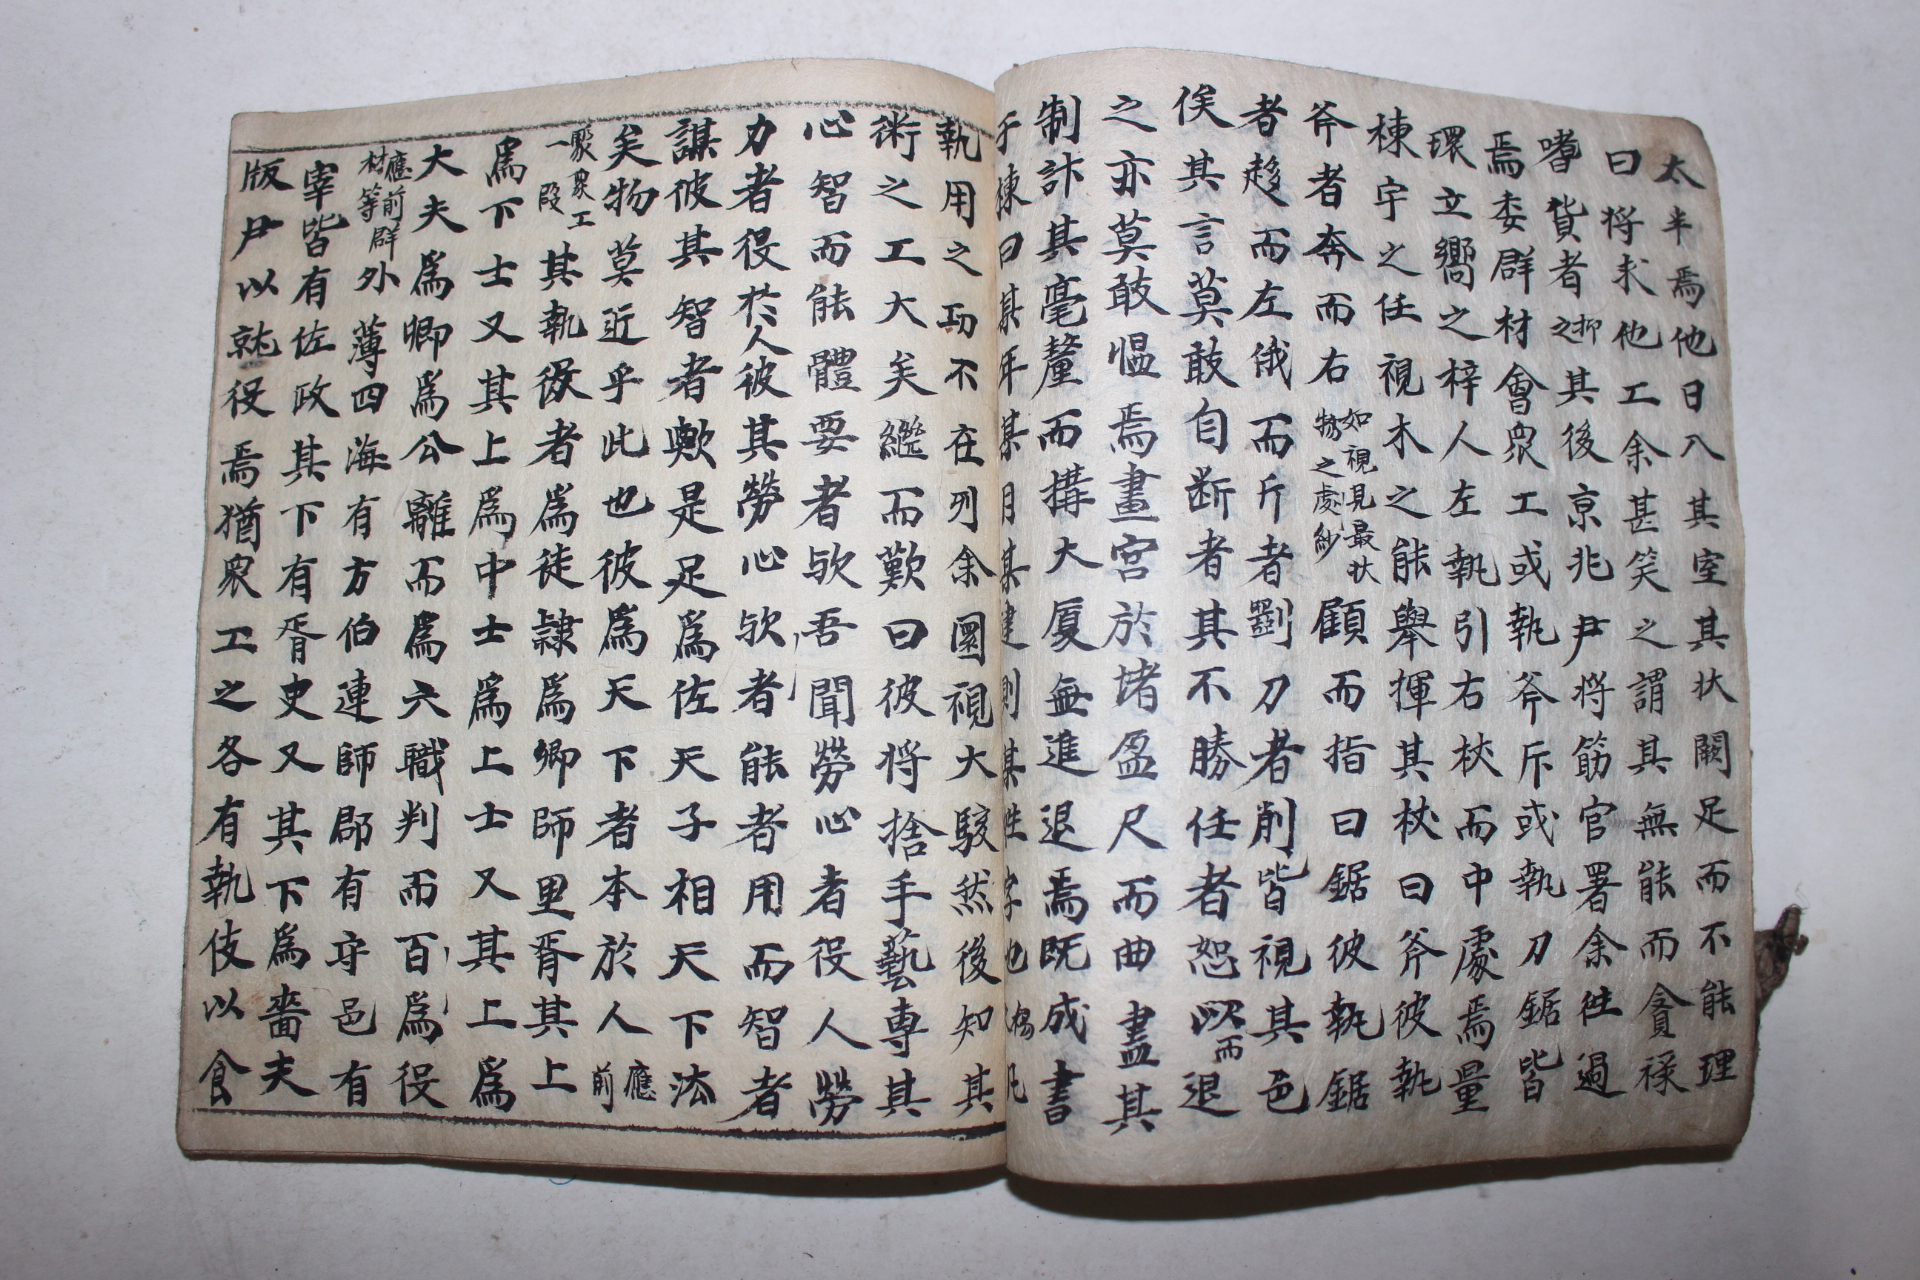 太半焉他日入其室其牀闕足而不能理
曰将求他工余甚笑之謂其無能而貪祿
嗜貨者抑之其後京兆尹将飾官署余徃過
焉委群材會眾工或執斧斤或執刀鋸皆
環立嚮之梓人左執引右杖而中處焉量
棟宇之任視木之能舉揮其杖曰斧彼執
斧者奔而右如視見最状物之處紗顧而指曰鋸彼執鋸
者趍而左俄而斤者劉刀者削皆視其色
俟其言莫敢自断者其不勝任者怒以而退
之亦莫敢愠焉畫宮於堵盈尺而曲盡其
制計其毫釐而構大厦無進退焉既成書
于棟曰某年某月某建則某姓字也凡
執用之功不在列余圜視大駭然後知其
術之工大矣継而歎曰彼将捨手藝專其
心智而能體要者欤吾聞勞心者役人勞
力者役於人彼其勞心欤者能者用而智者
謀彼其智者歟是足為佐天子相天下法
矣物莫近乎此也彼為天下者本於人應前
聚眾工一段其執役者為徒隷為卿師里胥其上
為下士又其上為中士為上士又其上為
大夫為卿為公離而為六職判而百為役
應前群材等外薄四海有方伯連師郡有守邑有
宰皆有佐政其下有胥史又其下為嗇夫
版尹以就役焉猶眾工之各有執伎以食